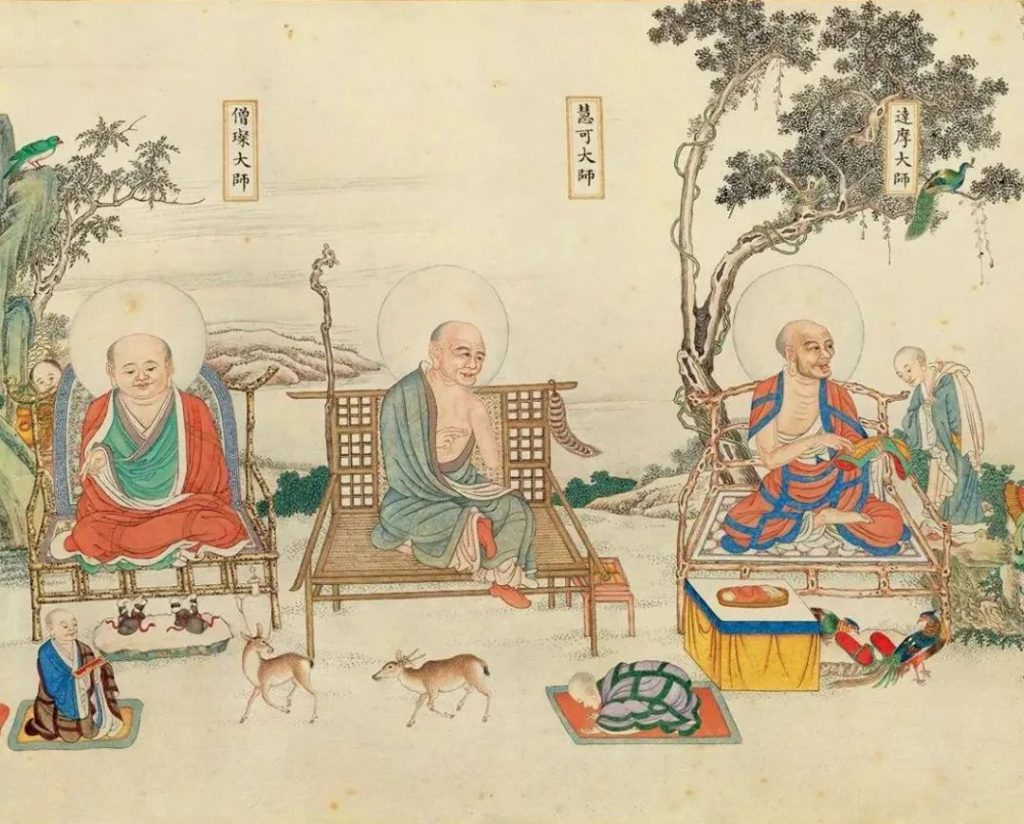 達摩大師
慧可大師
僧璨大師